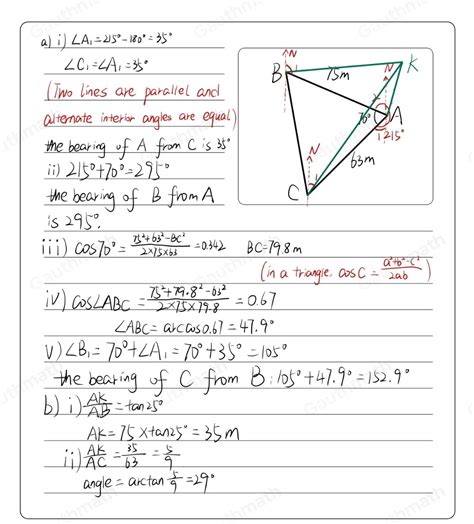 a) i) ∠A₁=215°-180°=35°
∠C₁=∠A₁=35°
(Two lines are parallel and
alternate interior angles are equal)
the bearing of A from C is 35°
ii) 215°+70°=295°
the bearing of B from A
is 295°.
iii) cos70°= (75²+63²-BC²)/(2×75×63) =0.342 BC=79.8m
(in a triangle, cosC = (a²+b²-c²)/(2ab))
iv) cos∠ABC = (75²+79.8²-63²)/(2×75×79.8) = 0.67
∠ABC= arccos0.67 = 47.9°
V) ∠B₁= 70°+∠A₁=70°+35°=105°
the bearing of C from B: 105°+47.9°=152.9°
b) i) AK/AB = tan25°
AK= 75×tan25°= 35m
ii) AK/AC = 35/63 = 5/9
angle= arctan 5/9 =29°
N
B
1
75m
K
70°
A
1
215°
N
63m
C
1
Gauthmath